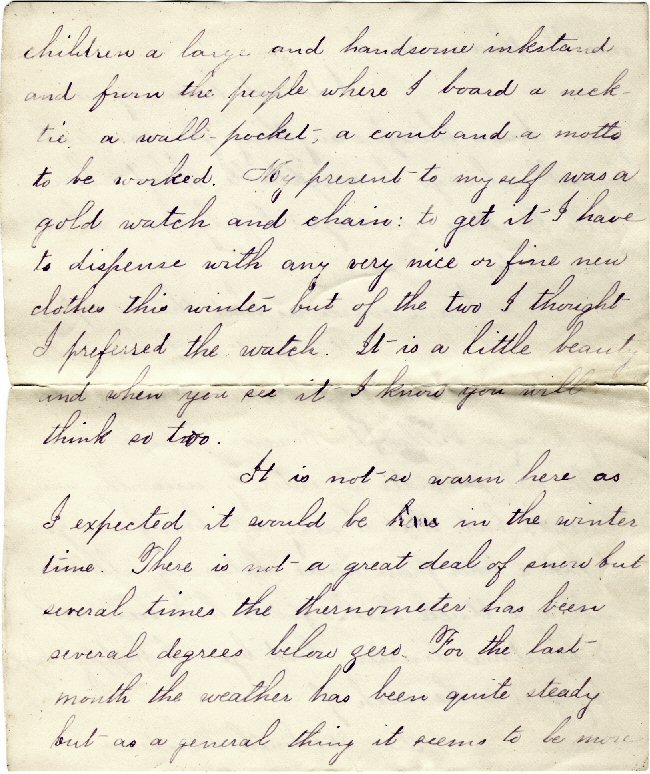 children a large and handsome inkstand
and from the people where I board a neck-
tie a wall-pocket, a comb and a motto
to be worked. My present to myself was a
gold watch and chain: to get it I have
to dispense with any very nice or fine new
clothes this winter but of the two I thought
I preferred the watch. It is a little beauty
and when you see it I know you will
think so too.
It is not so warm here as
I expected it would be in the winter
time. There is not a great deal of snow but
several times the thermometer has been
several degrees below zero. For the last
month the weather has been quite steady
but as a general thing it seems to be more